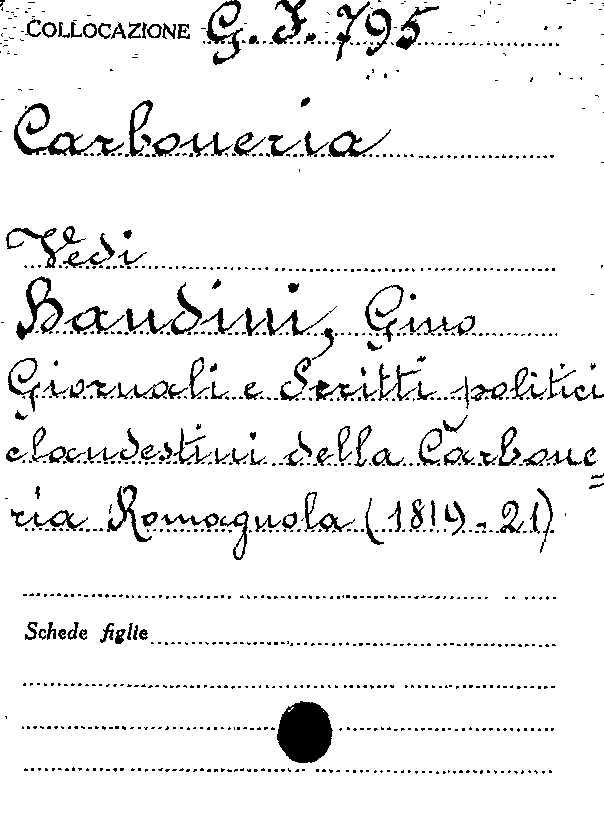 COLLOCAZIONE G. F. 795
Carboneria
Vedi
Bandini, Gino
Giornali e Scritti politici
clandestini della Carbone=
ria Romagnola (1819-21)
Schede figlie